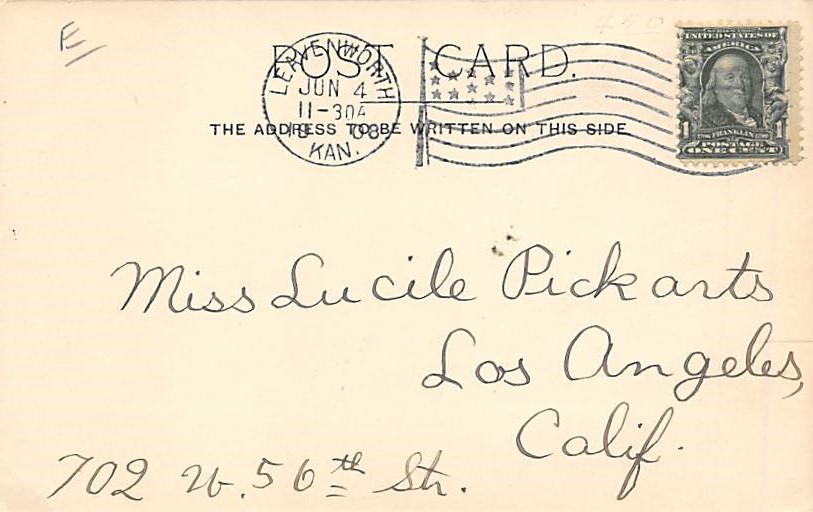 E
450
POST CARD.
LEAVENWORTH
JUN 4
11-30A
1908
KAN.
THE ADDRESS TO BE WRITTEN ON THIS SIDE
UNITED STATES OF
AMERICA
1 FRANKLIN 1
POSTAGE
ONE CENT
Miss Lucile Pickarts
Los Angeles,
Calif.
702 W. 56th Str.